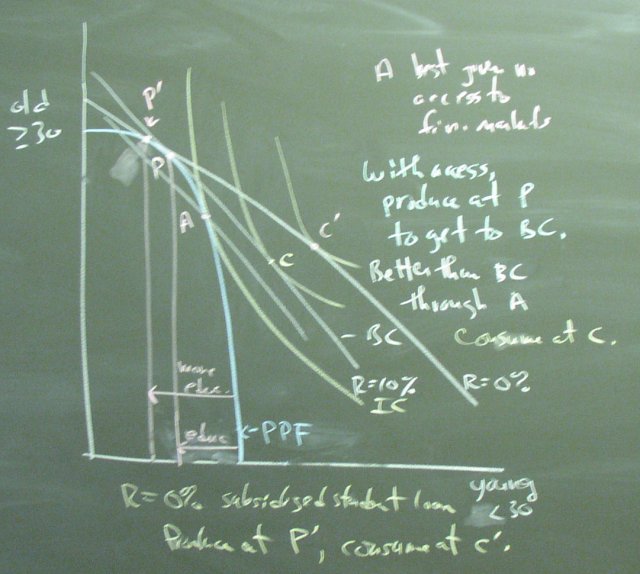 A best given no
access to
fin. markets
old
≥30
P'
P
A
C'
C
With access,
produce at P
to get to BC.
Better than BC
through A
consume at C.
BC
R=10%
R=0%
IC
more
educ.
educ
PPF
young
<30
R=0% subsidized student loan
Produce at P', consume at C'.